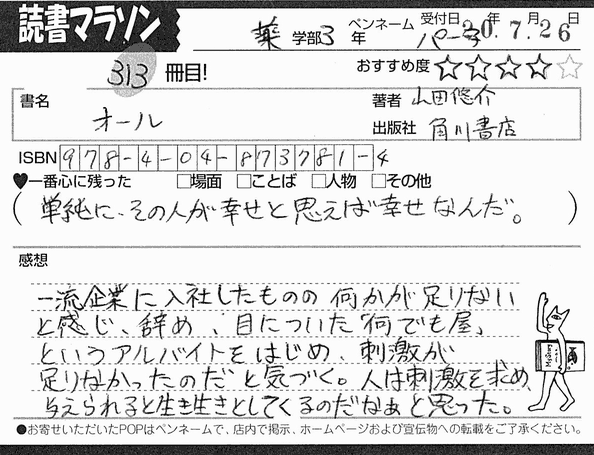 読書マラソン
薬 学部3年 ペンネーム パー子 受付日 20年7月26日
313 冊目! おすすめ度 ★★★★☆
書名 オール
著者 山田悠介
出版社 角川書店
ISBN 978-4-04-873781-4
♥一番心に残った □場面 □ことば □人物 □その他
(単純に、その人が幸せと思えば幸せなんだ。)
感想
一流企業に入社したものの何かが足りない
と感じ、辞め、目についた「何でも屋」
というアルバイトをはじめ、刺激が
足りなかったのだと気づく。人は刺激を求め、
与えられると生き生きとしてくるのだなぁと思った。
●お寄せいただいたPOPはペンネームで、店内で掲示、ホームページおよび宣伝物への転載をご了承ください。